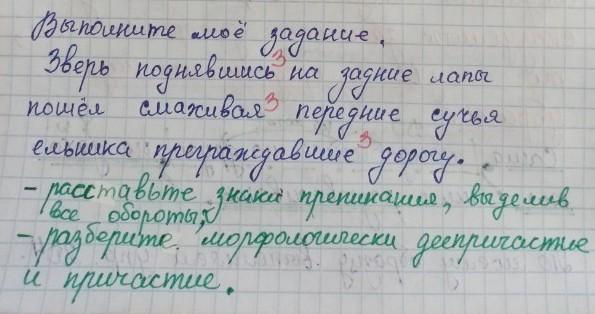 Выполните моё задание.
Зверь поднявшись 3 на задние лапы
пошёл смаживая 3 передние сучья
ельника преграждавшие 3 дорогу.
- расставьте знаки препинания, выделив
все обороты;
- разберите морфологически деепричастие
и причастие.